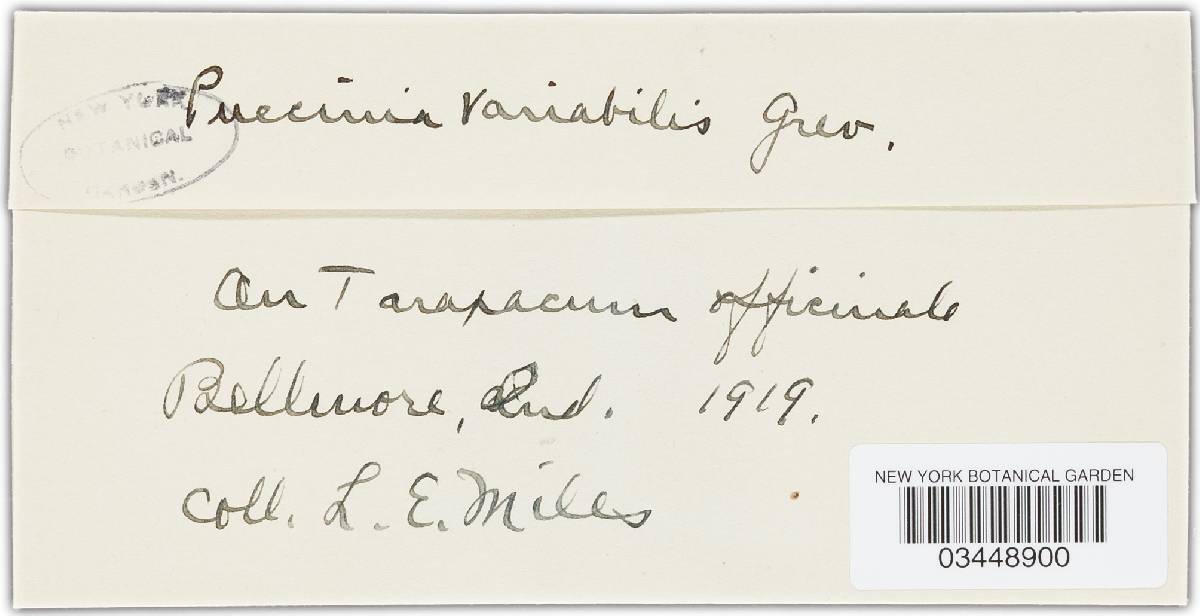 Puccinia variabilis Grev.
NEW YORK
BOTANICAL
GARDEN.
On Taraxacum officinale
Bellmore, Ind. 1919.
Coll. L. E. Miles
NEW YORK BOTANICAL GARDEN
03448900